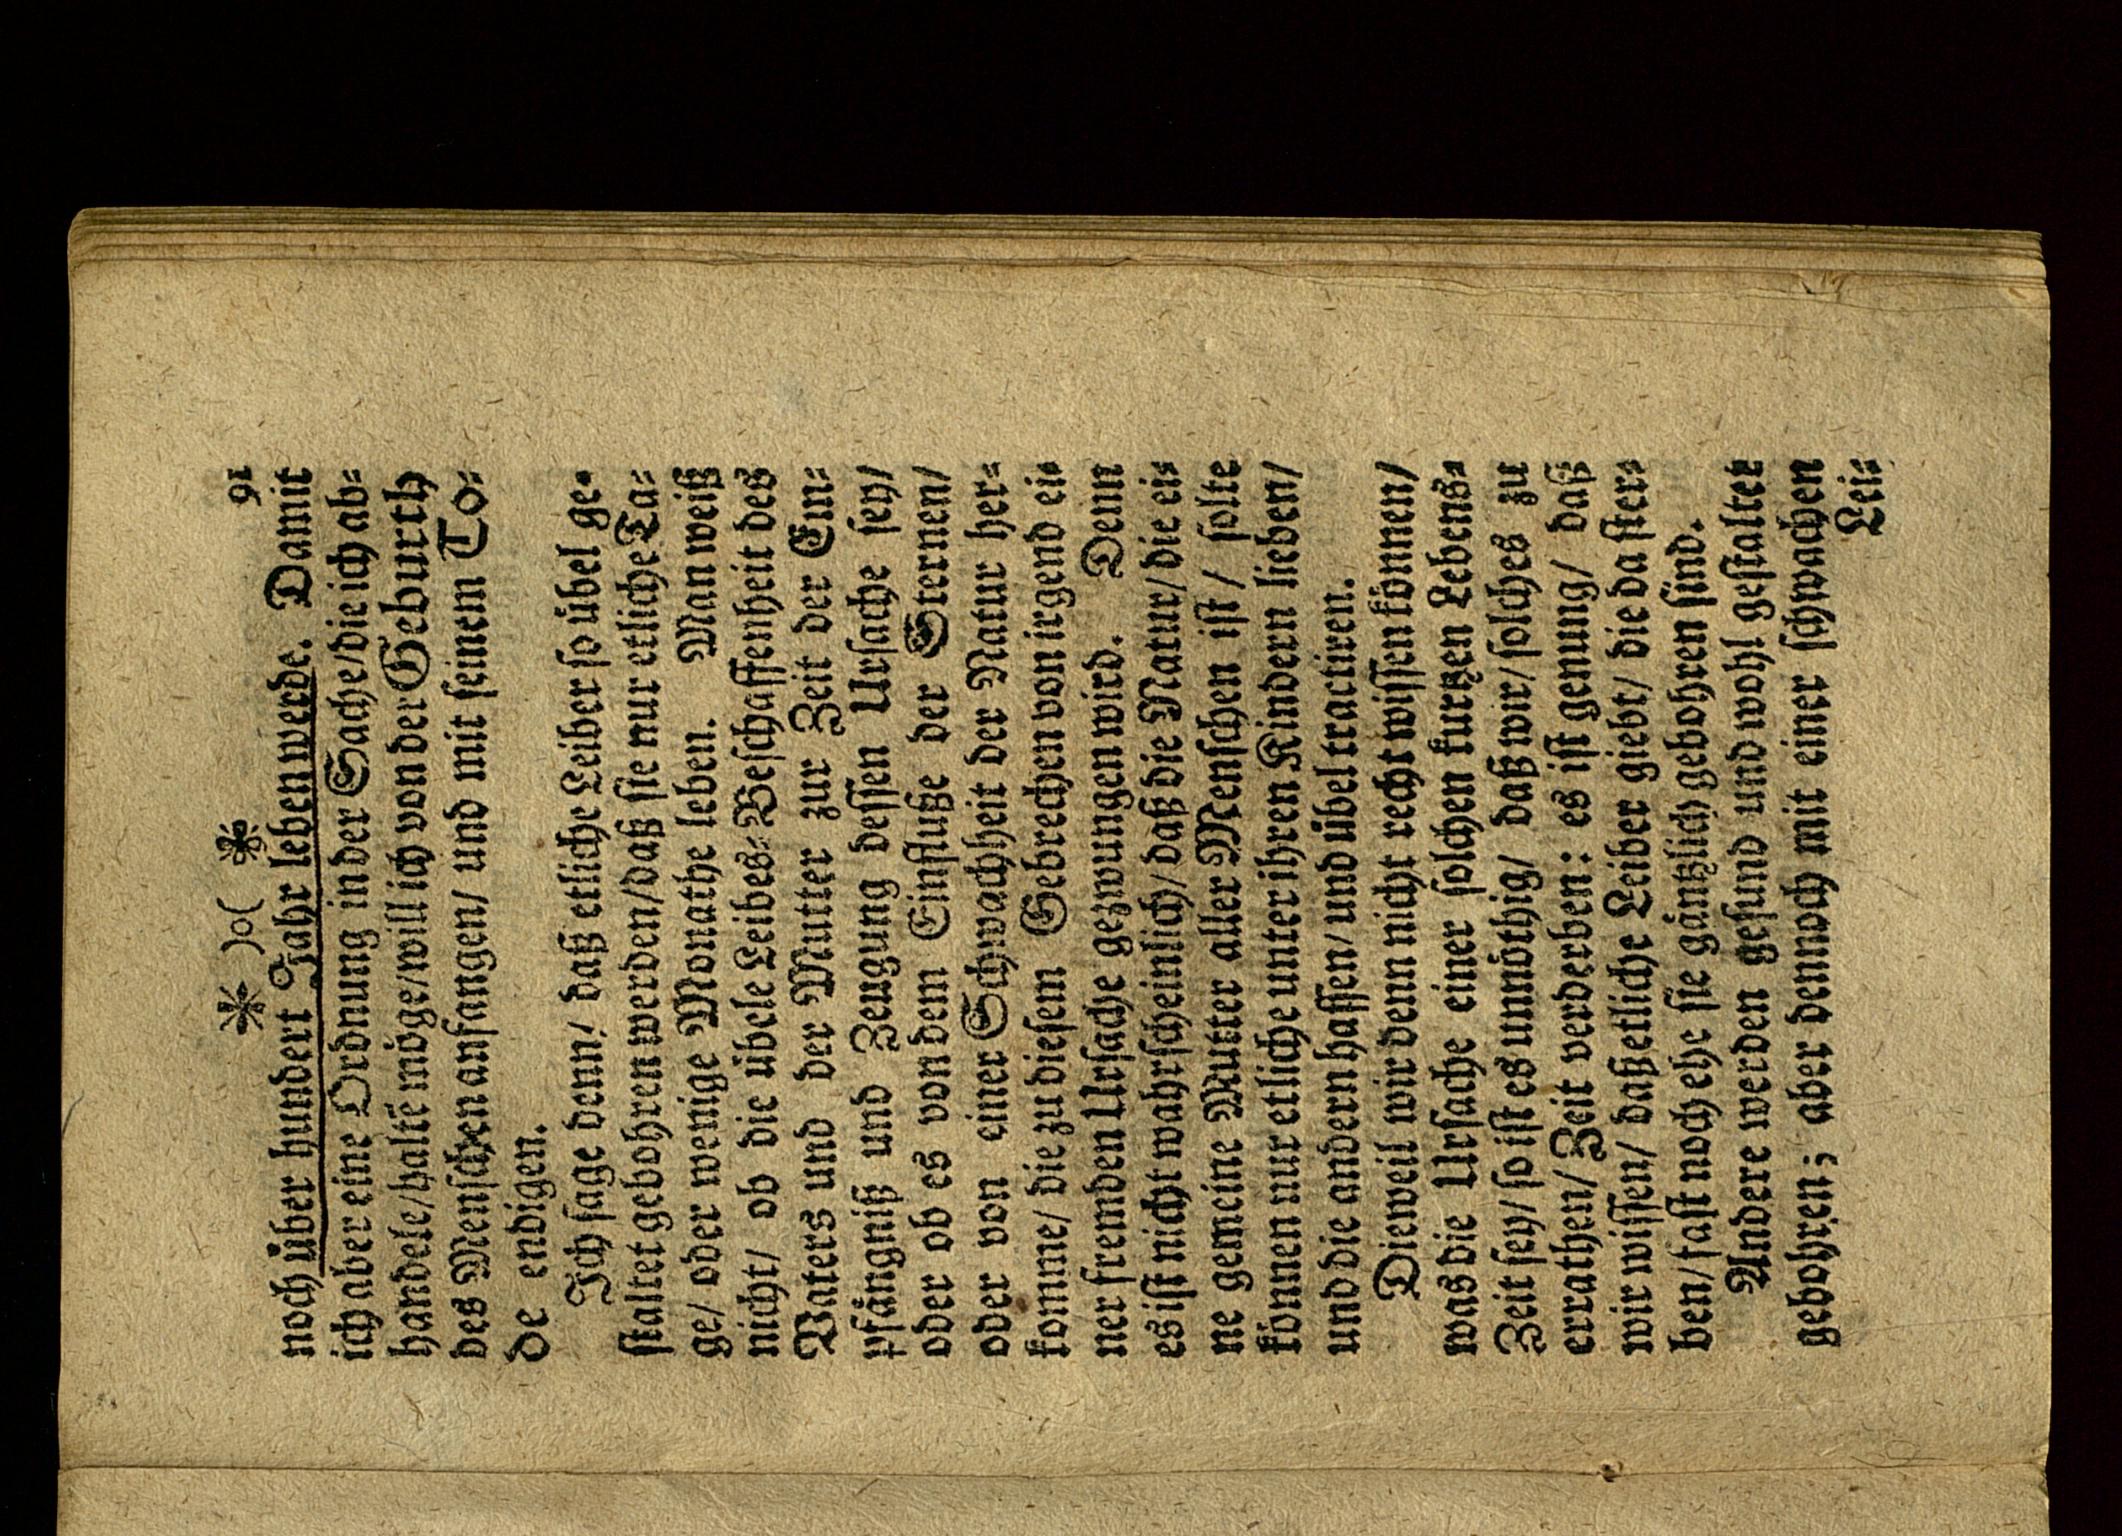 * )o( * 91
noch über hundert Jahr leben werde. Damit
ich aber eine Ordnung in der Sache/die ich ab-
handele/halte möge/will ich von der Geburth
des Menschen anfangen/ und mit seinem To-
de endigen.
Ich sage denn/ daß etliche Leiber so übel ge-
staltet gebohren werden/daß sie nur etliche Ta-
ge/ oder wenige Monathe leben. Man weiß
nicht/ ob die übele Leibes-Beschaffenheit des
Vaters und der Mutter zur Zeit der Em-
pfängniß und Zeugung dessen Ursache sey/
oder ob es von dem Einfluße der Sternen/
oder von einer Schwachheit der Natur her-
komme/ die zu diesem Gebrechen von irgend ei-
ner fremden Ursache gezwungen wird. Denn
es ist nicht wahrscheinlich/ daß die Natur/ die ei-
ne gemeine Mutter aller Menschen ist / solte
können nur etliche unter ihren Kindern lieben/
und die andern hassen/ und übel tractiren.
Dieweil wir denn nicht recht wissen können/
was die Ursache einer solchen kurtzen Lebens-
Zeit sey/ so ist es unnöthig/ daß wir/ solches zu
errathen/ Zeit verderben: es ist genung/ daß
wir wissen/ daß etliche Leiber giebt/ die da ster-
ben/ fast noch ehe sie gäntzlich gebohren sind.
Andere werden gesund und wohl gestaltet
gebohren; aber dennoch mit einer schwachen
Lei-